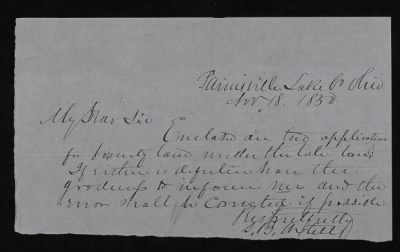 Painesville Lake Co Ohio
Nov 18. 1850
My Dear Sir
Enclosed are two applications
for bounty land under the late law.
If either is defective have the
goodness to inform me and the
error shall be corrected if possible
Respectfully